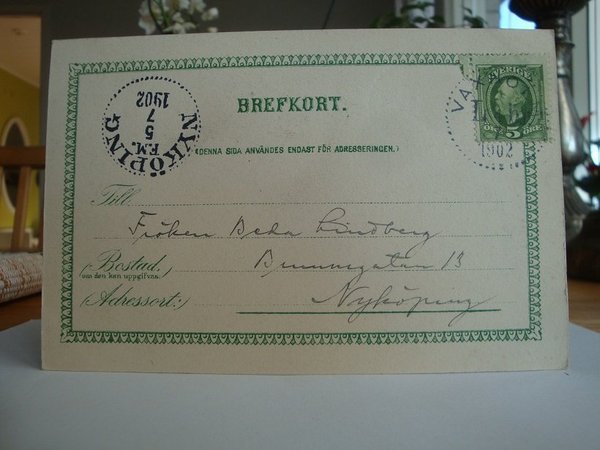 BREFKORT.
(DENNA SIDA ANVÄNDES ENDAST FÖR ADRESSERINGEN.)
NYKÖPING
F.M.
5
7
1902
SVERIGE
5
ÖRE
1902
Till
Fröken Beda Lindberg
(Bostad,
om den kan uppgifvas.
Brunnsgatan 13
(Adressort:)
Nyköping